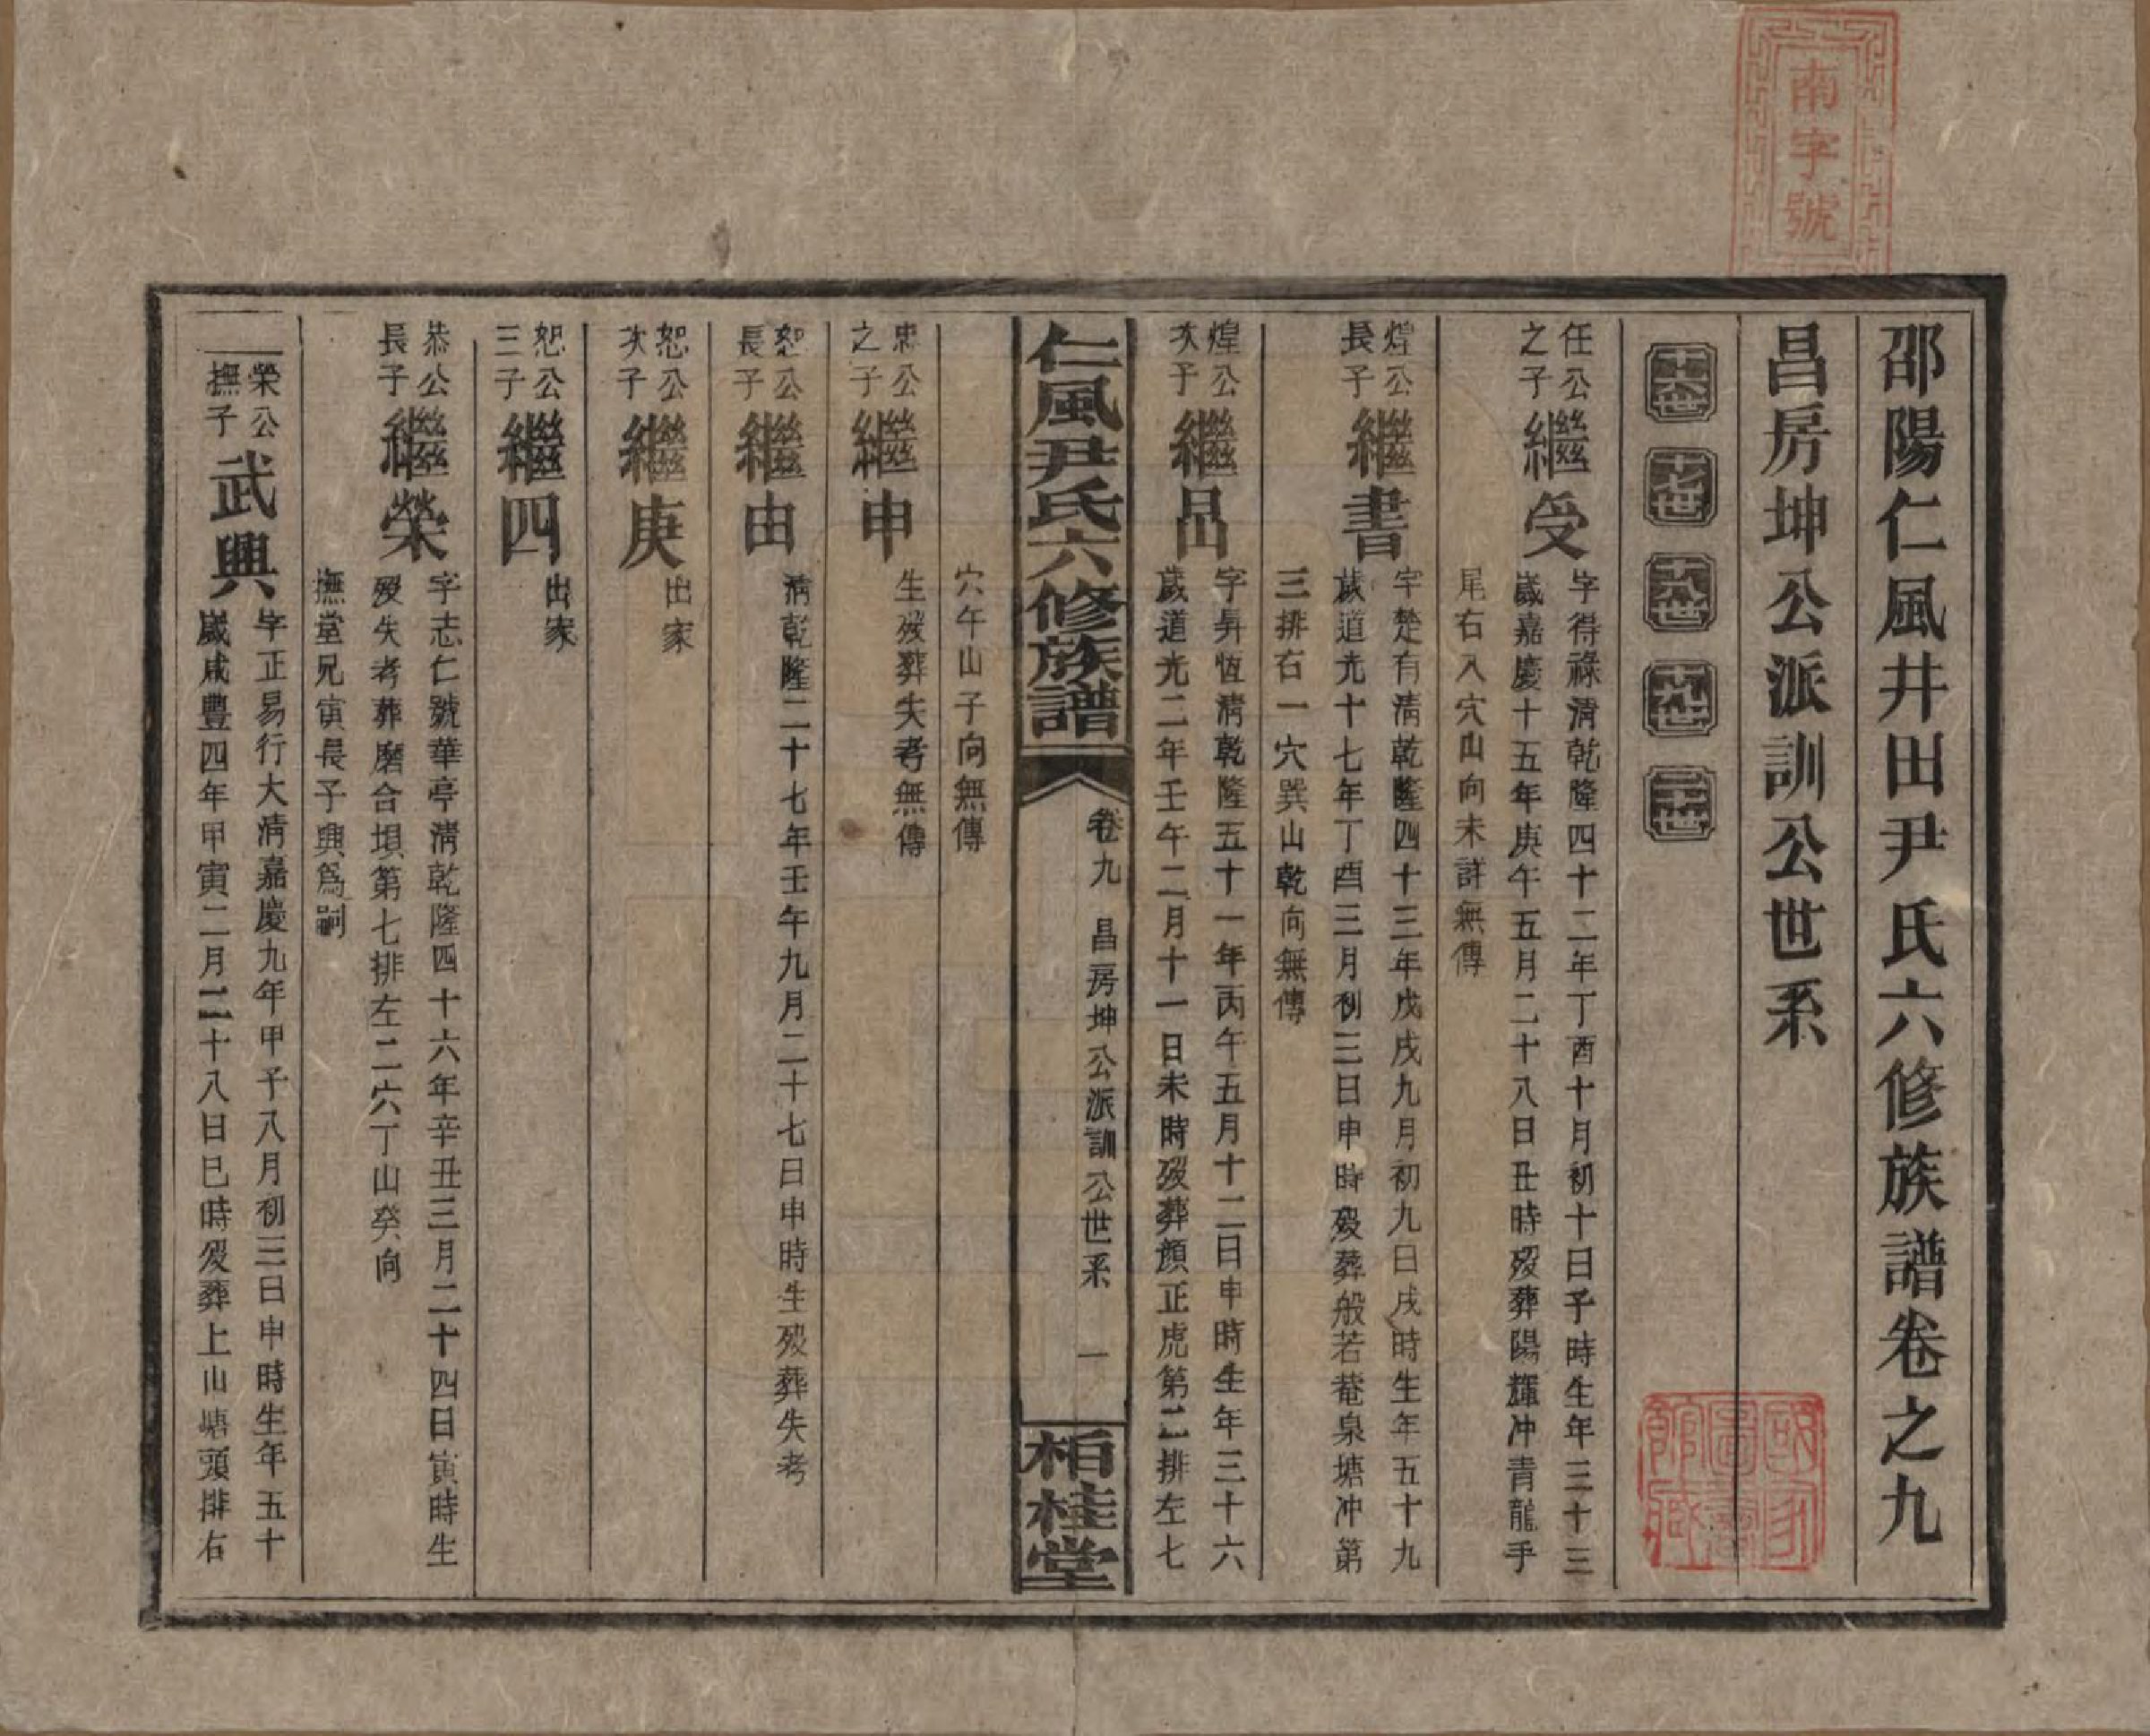 南字號
邵陽仁風井田尹氏六修族譜卷之九
昌房坤公派訓公世系
十六世 十七世 十八世 十九世 二十世
任公之子 繼受 字得祿清乾隆四十二年丁酉十月初十日子時生年三十三
歲嘉慶十五年庚午五月二十八日丑時歿葬陽輝冲青龍手
尾右入穴山向未詳無傳
煌公長子 繼書 字楚有清乾隆四十三年戊戌九月初九日戌時生年五十九
歲道光十七年丁酉三月初三日申時歿葬般若菴泉塘冲第
三排右一穴巽山乾向無傳
煌公次子 繼昌 字昇恆清乾隆五十一年丙午五月十二日申時生年三十六
歲道光二年壬午二月十一日未時歿葬顏正虎第二排左七
仁風尹氏六修族譜
卷九 昌房坤公派訓公世系 一
栢桂堂
穴午山子向無傳
忠公之子 繼申 生歿葬失考無傳
恕公長子 繼由 清乾隆二十七年壬午九月二十七日申時生歿葬失考
恕公次子 繼庚 出家
恕公三子 繼四 出家
恭公長子 繼榮 字志仁號華亭清乾隆四十六年辛丑三月二十四日寅時生
歿失考葬磨合垻第七排左二穴丁山癸向
撫堂兄寅長子興爲嗣
榮公撫子 武興 字正易行大清嘉慶九年甲子八月初三日申時生年五十
歲咸豐四年甲寅二月二十八日巳時歿葬上山塘頭排右